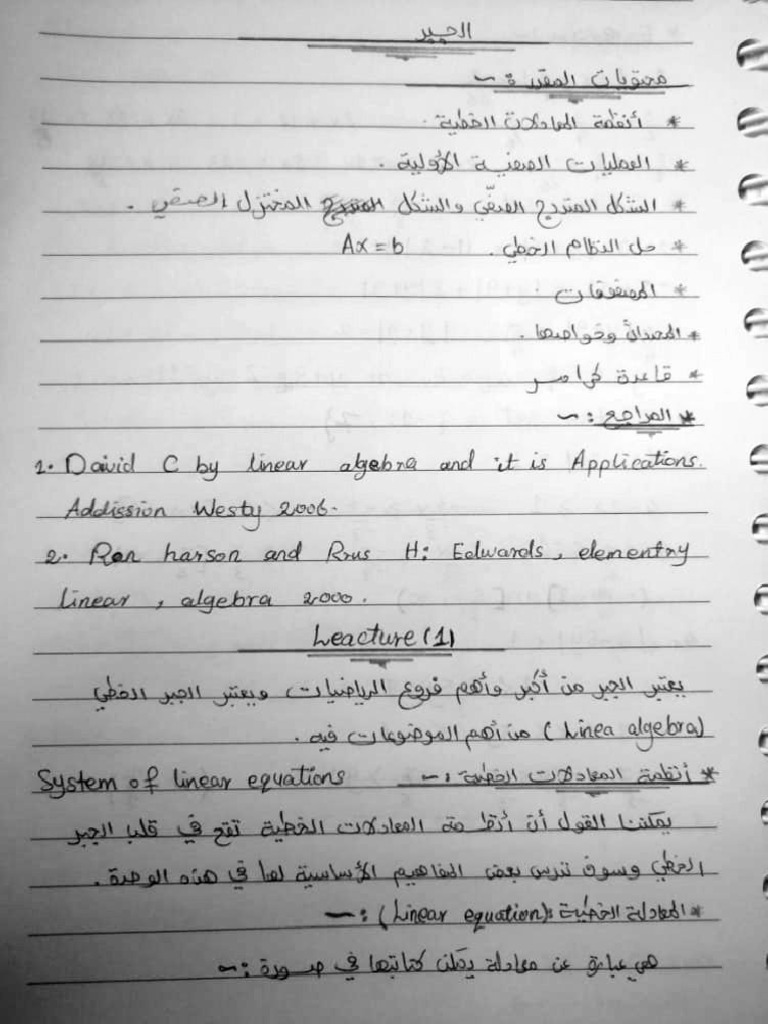 الجبر
محتويات المقرر :~
* أنظمة المعادلات الخطية .
* العمليات الصفية الأولية .
* الشكل المتدرج الصفّي والشكل المتدرج المختزل الصفي .
* حل النظام الخطي . Ax = b
* المصفوفات .
* المحددات وخواصها .
* قاعدة كرامر
* المراجع :~
1. Daivid C by linear algebra and it is Applications.
Addission Westy 2006.
2. Ron harson and Rrus H: Edwards, elementry
linear, algebra 2000.
Leacture (1)
يعتبر الجبر من أكبر وأهم فروع الرياضيات ويعتبر الجبر الخطي
(Linea algebra) من أهم الموضوعات فيه .
* أنظمة المعادلات الخطية :~ System of linear equations
يمكننا القول أن أنظمة المعادلات الخطية تقع في قلب الجبر
الخطي وسوف ندرس بعض المفاهيم الأساسية لها في هذه الوحدة .
* المعادلة الخطية (Linear equation) :~
هي عبارة عن معادلة يمكن كتابتها في صورة :~